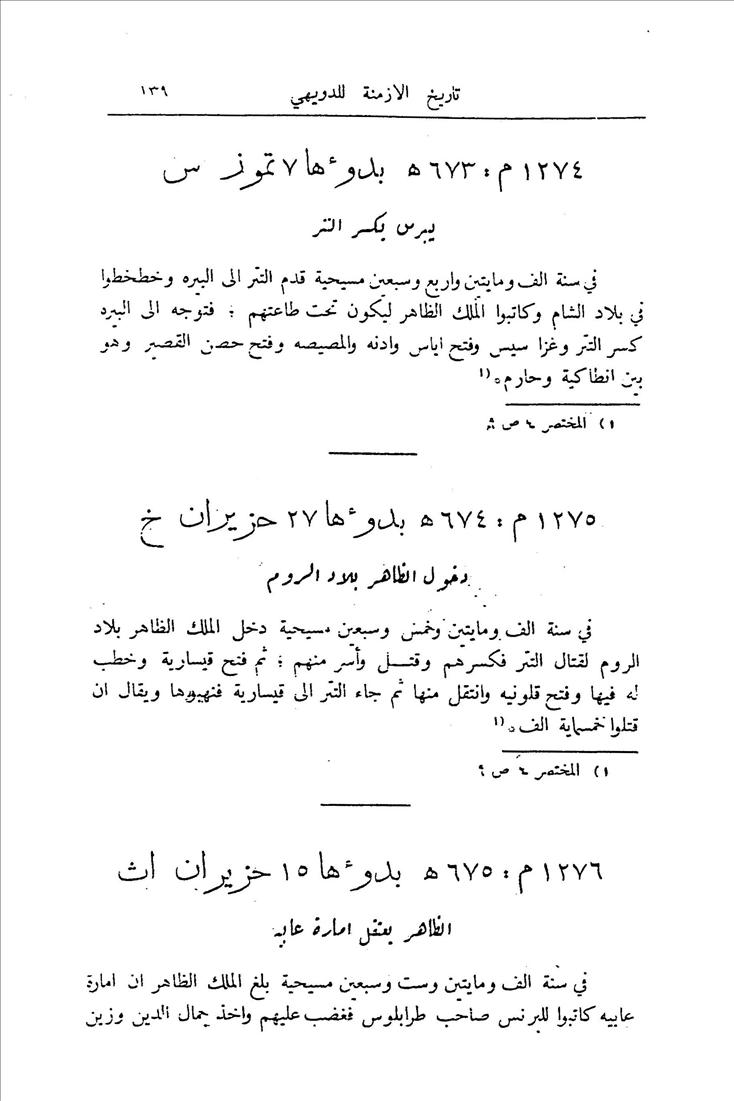 تاريخ الازمنة للدويهي ١٣٩
١٢٧٤ م : ٦٧٣ ه بدوءها ٧ تموز س
يبرس يكسر التتر
في سنة الف ومايتين واربع وسبعين مسيحية قدم التتر الى البيره وخطخطوا
في بلاد الشام وكاتبوا الملك الظاهر ليكون تحت طاعتهم ؛ فتوجه الى البيره
كسر التتر وغزا سيس وفتح اياس وادنه والمصيصه وفتح حصن القصير وهو
بين انطاكية وحارم ٠ ١)
١) المختصر ٤ ص ٨
١٢٧٥ م : ٦٧٤ ه بدوءها ٢٧ حزيران خ
دخول الظاهر بلاد الروم
في سنة الف ومايتين وخمس وسبعين مسيحية دخل الملك الظاهر بلاد
الروم لقتال التتر فكسرهم وقتل وأسر منهم ؛ ثم فتح قيسارية وخطب
له فيها وفتح قلونيه وانتقل منها ثم جاء التتر الى قيسارية فنهبوها ويقال ان
قتلوا خمسماية الف ٠ ١)
١) المختصر ٤ ص ٩
١٢٧٦ م : ٦٧٥ ه بدوءها ١٥ حزيران اث
الظاهر يعتقل امارة عابه
في سنة الف ومايتين وست وسبعين مسيحية بلغ الملك الظاهر ان امارة
عابيه كاتبوا للبرنس صاحب طرابلوس فغضب عليهم واخذ جمال الدين وزين